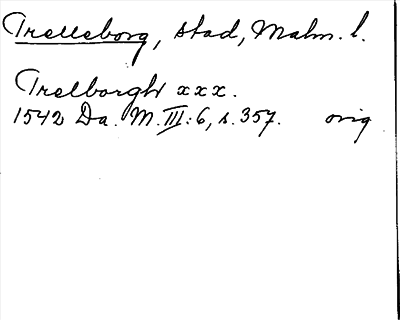 Trelleborg, stad, Malm. l.
Trelborgh xxx.
1542 Da. M. III:6, s. 357. orig